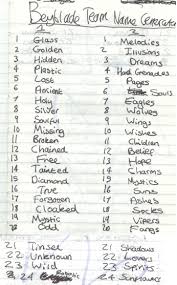 Beyblade Team Name Generator
1 2
1 Glass 1 Melodies
2 Golden 2 Illusions
3 Hidden 3 Dreams
4 Plastic 4 Hand Grenades
5 Lost 5 Pages
6 Ancient 6 Souls
7 Holy 7 Eagles
8 Silver 8 Wolves
9 Soulful 9 Wings
10 Missing 10 Wishes
11 Broken 11 Children
12 Chained 12 Belief
13 Free 13 Hope
14 Tainted 14 Charms
15 Diamond 15 Mystics
16 True 16 Suns
17 Forgotten 17 Ashes
18 Cloaked 18 Socks
19 Mystic 19 Vipers
20 Odd 20 Fangs
21 Tinsel 21 Shadows
22 Unknown 22 Lovers
23 Wild 23 Spirits
24 Robotic 24 Sunflowers